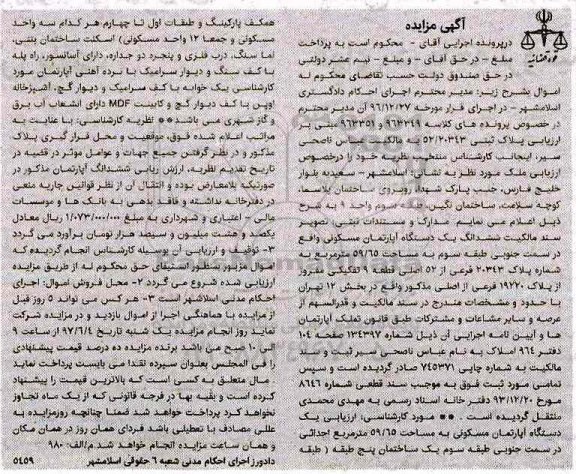 آگهی مزایده
درپرونده اجرایی آقای - محکوم است به پرداخت
مبلغ - در حق آقای - و مبلغ - نیم عشر دولتی
در حق صندوق دولت حسب تقاضای محکوم له
اموال بشرح زیر: مدیر محترم اجرای احکام دادگستری
اسلامشهر - در اجرای قرار مورخه ۹۶/۱۲/۲۷ آن مدیر محترم
در خصوص پرونده های کلاسه ۹۶۲۲۴۹ و ۹۶۲۳۵۱ مبنی بر
ارزیابی پلاک ثبتی ۵۲/۲۰۳۴۳ به مالکیت عباس ناصحی
سیر، اینجانب کارشناس منتخب نظریه خود را درخصوص
ارزیابی ملک مورد نظر به نشانی: اسلامشهر - سعیدیه بلوار
خلیج فارس، جنب پارک شهدا، روبروی ساختمان پلاسما،
کوچه سلامت، ساختمان نگین، طبقه سوم واحد ۹ به شرح
ذیل اعلام می نمایم. مدارک و مستندات ثبتی: تصویر
سند مالکیت ششدانگ یک دستگاه آپارتمان مسکونی واقع
در سمت جنوبی طبقه سوم به مساحت ۵۹/۶۵ مترمربع به
شماره پلاک ۲۰۳۴۳ فرعی از ۵۲ اصلی قطعه ۹ تفکیکی مفروز
از پلاک ۱۹۷۷۰ فرعی از اصلی مذکور واقع در بخش ۱۲ تهران
با حدود و مشخصات مندرج در سند مالکیت و قدرالسهم از
عرصه و سایر مشاعات و مشترکات طبق قانون تملک آپارتمان
ها و آیین نامه اجرایی آن ذیل شماره ۱۳۴۳۹۷ صفحه ۱۰۴
دفتر ۹۶۴ املاک به نام عباس ناصحی سیر ثبت و سند
مالکیت به شماره چاپی ۷۴۵۳۷۱ صادر گردیده است و سپس
تمامی مورد ثبت فوق به موجب سند قطعی شماره ۸۶۴۶
مورخ ۹۳/۱۲/۲۰ دفتر خانه اسناد رسمی به مهدی محمدی
منتقل گردیده است. ** مورد کارشناسی: ارزیابی یک
دستگاه آپارتمان مسکونی به مساحت ۵۹/۶۵ مترمربع احداثی
در سمت جنوبی طبقه سوم یک ساختمان پنج طبقه ( طبقه
همکف پارکینگ و طبقات اول تا چهارم هر کدام سه واحد
مسکونی و جمعا ۱۲ واحد مسکونی) اسکلت ساختمان بتنی،
نما سنگ، درب فلزی و پنجره دو جداره، دارای آسانسور، راه پله
با کف سنگ و دیوار سرامیک با نرده آهنی آپارتمان مورد
کارشناسی یک خوابه با کف سرامیک و دیوار گچ، آشپزخانه
اوپن با کف دیوار گچ و کابینت MDF دارای انشعاب آب برق
و گاز شهری می باشد ** نظریه کارشناسی: با عنایت به
مراتب اعلام شده فوق، موقعیت و محل قرار گیری پلاک
مذکور و در نظر گرفتن جمیع جهات و عوامل موثر در قضیه در
تاریخ تقدیم نظریه، ارزش ریابی ششدانگ آپارتمان مذکور در
صورتیکه بلامعارض بوده و انتقال آن از نظر قوانین جاریه منعی
در دفترخانه نداشته و فاقد بدهی به بانک ها و موسسات
مالی - اعتباری و شهرداری به مبلغ ۱/۰۷۳/۰۰۰/۰۰۰ ریال معادل
یکصد و هفت میلیون و سیصد هزار تومان برآورد می گردد
۳- توقیف و ارزیابی آن بوسیله کارشناس انجام گردیده که
اموال مزبور بمنظور استیفای حق محکوم له از طریق مزایده
ارزیابی شده شروع می گردد ۲- محل فروش اموال: اجرای
احکام مدنی اسلاشهر است ۳- هر کس می تواند ۵ روز قبل
از مزایده با هماهنگی اجرا از اموال بازدید و در مزایده شرکت
نماید روز انجام مزایده یک شنبه تاریخ ۹۷/۶/۴ از ساعت ۹
الی ۱۰ صبح می باشد برنده مزایده ده درصد قیمت پیشنهادی
را فی المجلس بعنوان سپرده نقدا می بایست پرداخت نماید
. مال متعلق به کسی است که بالاترین قیمت را پیشنهاد
کرده است و بقیه بها در فرجه قانونی که از یک ماه تجاوز
نخواهد کرد پرداخت خواهد شد ضمنا چنانچه روزمزایده به
عللی مصادف با تعطیلی باشد فردای همان روز در همان مکان
و همان ساعت مزایده انجام خواهد شد.م/الف: ۹۸۰
دادورز اجرای احکام مدنی شعبه ۶ حقوقی اسلامشهر
۵۴۵۹